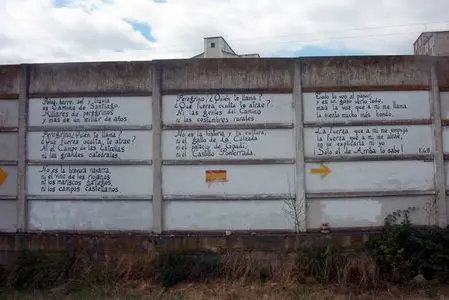 Polvo, barro, sol y lluvia
es Camino de Santiago.
Millares de peregrinos
y más de un millar de años.
Peregrino ¿Quién te llama?
¿Qué fuerza oculta te atrae?
Ni el Campo de las Estrellas
ni las grandes catedrales.
No es la bravura navarra,
ni el vino de los riojanos
ni los mariscos gallegos,
ni los campos castellanos.
Peregrino, ¿Quién te llama?
¿Qué fuerza oculta te atrae?
Ni las gentes del Camino
ni las costumbres rurales.
No es la historia y la cultura,
ni el gallo de la Calzada
ni el palacio de Gaudí,
ni el Castillo Ponferrada.
Todo lo veo al pasar,
y es un gozo verlo todo,
mas la voz que a mí me llama
la siento mucho más hondo.
La fuerza que a mí me empuja
la fuerza que a mí me atrae,
no sé explicarla ni yo
Solo el de Arriba lo sabe!
E.G.B.